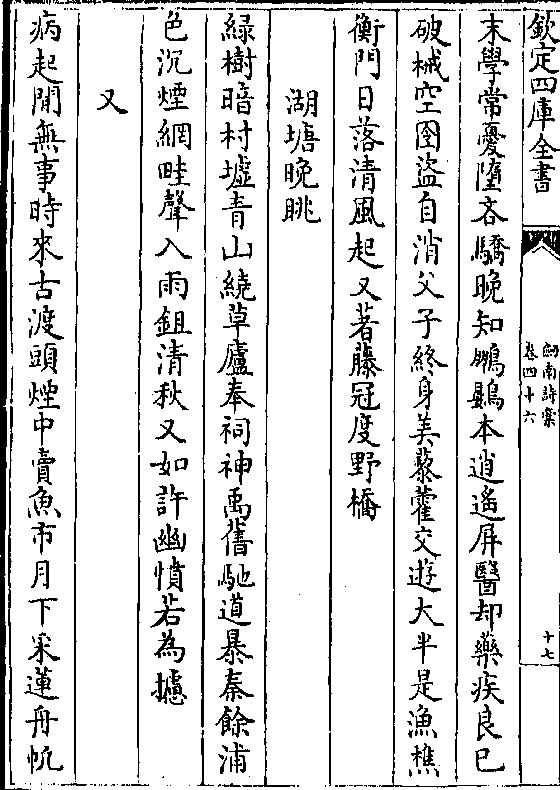 欽定四庫全書
劒南詩稾
卷四十六
十七
末學常憂墮吝驕晚知鵬鷃本逍遥屏醫却藥疾良已
破械空圄盜自消父子終身美藜藿交遊大半是漁樵
衡門日落清風起又著藤冠度野橋
湖塘晚眺
緑樹暗村墟青山繞草廬奉祠神禹舊馳道暴秦餘浦
色沉煙網畦聲入雨鉏清秋又如許幽憤若為攄
又
病起閒無事時來古渡頭煙中賣魚市月下采蓮舟帆